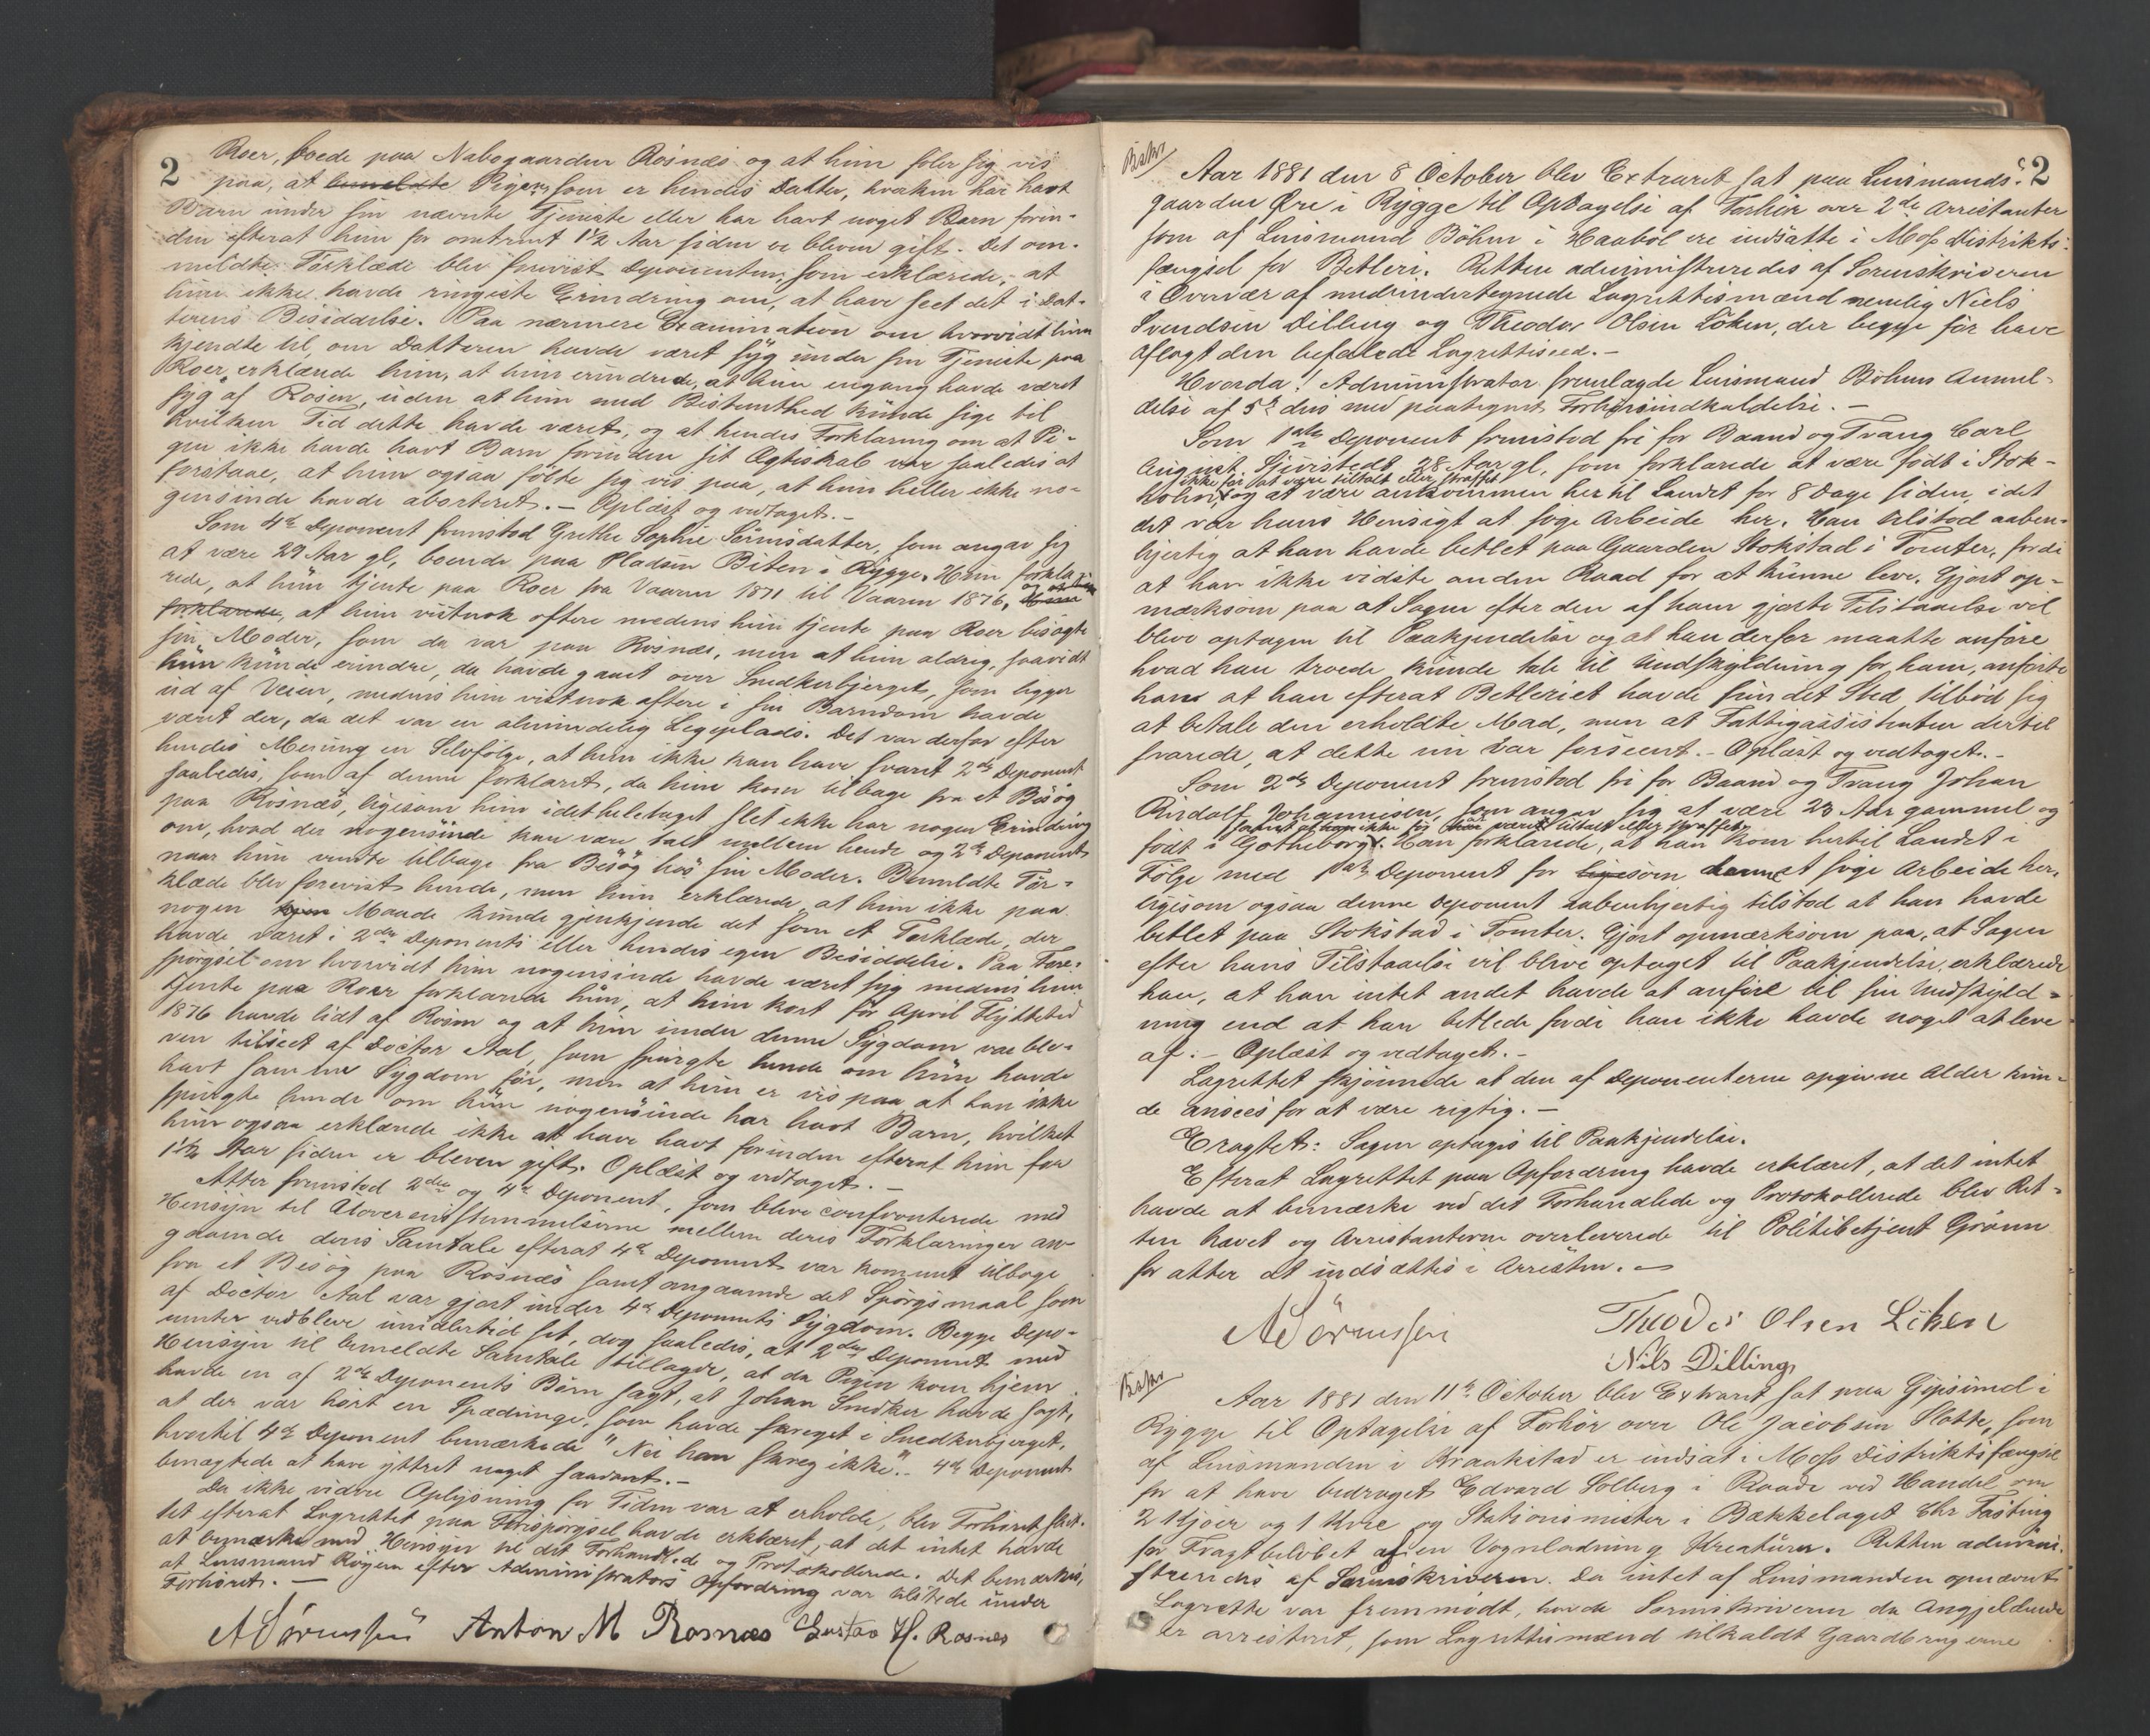 2
Roer, boede paa Nabogaarden Rosnæs og at hun føler sig vis
paa, at bemeldte Pigen, som er hendes Datter, hverken har havt
Barn under sin nævnte Tjeneste eller har havt noget Barn forin-
den efterat hun for omtrent 1½ Aar siden er bleven gift. Det om-
meldte Tørklæde blev forevist Deponenten, som erklærede, at
hun ikke havde ringeste Erindring om, at have seet det i Dat-
terens Besiddelse. Paa nærmere Examination om hvorvidt hun
kjendte til, om Datteren havde været syg under sin Tjeneste paa
Roer, erklærede hun, at hun erindrede, at hun engang havde været
syg af Rosen, uden at hun med Bestemthed kunde sige til
hvilken Tid dette havde været, og at hendes Forklaring om at Pi-
gen ikke havde havt Barn forinden sit Ægteskab var saaledes at
forstaae, at hun ogsaa følte sig vis paa, at hun heller ikke no-
gensinde havde aborteret. - Oplæst og vedtaget. -
Som 4de Deponent fremstod Grethe Sophie Sørensdatter, som angav sig
at være 27 Aar gl, boende paa Pladsen Biten i Rygge. Hun forkla-
rede, at hun tjente paa Roer fra Vaaren 1871 til Vaaren 1876, og at hun
forklarede, at hun vistnok oftere medens hun tjente paa Roer besøgte
sin Moder, som da var paa Rosnæs, men at hun aldrig, saavidt
hun kunde erindre, da havde gaaet over Snedkerbjerget, som ligger
ud af Veien, medens hun vistnok oftere i sin Barndom havde
været der, da det var en almindelig Legeplads. Det var derfor efter
hendes Mening en Selvfølge, at hun ikke kan have svaret 2den Deponent
saaledes, som af denne forklaret, da hun kom tilbage fra et Besøg
paa Rosnæs, ligesom hun idethele taget slet ikke har nogen Erindring
om, hvad der nogensinde kan være talt mellem hende og 2de Deponent
naar hun vendte tilbage fra Besøg hos sin Moder. Bemeldte Tør-
klæde blev forevist hende, men hun erklærede, at hun ikke paa
nogen Maade kunde gjenkjende det som et Tørklæde, der
havde været i 2den Deponents eller hendes egen Besiddelse. Paa Fore-
spørgsel om hvorvidt hun nogensinde havde været syg medens hun
tjente paa Roer forklarede hun, at hun kort før April Flyttetid
1876 havde lidt af Rosen og at hun under denne Sygdom var ble-
ven tilseet af Doctor Aal, som spurgte hende om hun havde
havt samme Sygdom før, men at hun er vis paa at han ikke
spurgte hende om hun nogensinde har havt Barn, hvilket
hun ogsaa erklærede ikke at have havt forinden efterat hun for
1½ Aar siden er bleven gift. Oplæst og vedtaget. -
Atter fremstod 2den og 4de Deponent, som bleve confronterede med
Hensyn til Uoverensstemmelserne mellem deres Forklaringer an-
gaaende deres Samtale efterat 4de Deponent var kommet tilbage
fra et Besøg paa Rosnæs samt angaaende det Spørgsmaal som
af Doctor Aal var gjort under 4de Deponents Sygdom. Begge Depo-
nenter vedbleve imidlertid sit, dog saaledes, at 2den Deponent med
Hensyn til bemeldte Samtale tillagde, at da Pigen kom hjem
havde en af 2de Deponents Børn sagt, at Johan Snedker havde sagt,
at der var hørt en Spædunge, som havde skreget i Snedkerbjerget,
hvortil 4de Deponent bemærkede "Nei han skreg ikke". 4de Deponent
benægtede at have yttret noget saadant. -
Da ikke videre Oplysning for Tiden var at erholde, blev Forhøret slut-
tet efterat Lagrettet paa Forespørgsel havde erklæret, at det intet havde
at bemærke med Hensyn til det Forhandlede og Protokollerede. Det bemærkes,
at Lensmand Rygern efter Administrators Opfordring var tilstede under
Forhøret. -
A Sørenssen Anton M Rosnæs Gustav H. Rosnes
2
Aar 1881 den 8 October blev Extraret sat paa Lensmands-
gaarden Øre i Rygge til Optagelse af Forhør over 2de Arrestanter
som af Lensmand Böhm i Haabøl ere indsatte i Moss Distrikts-
fængsel for Betleri. Retten administreredes af Sorenskriveren
i Overvær af medundertegnede Lagrettesmænd nemlig Niels
Svendsen Dilling og Theodor Olsen Løken, der begge før have
aflagt den befalede Lagretteseed. -
Hvorda! Administrator fremlagde Lensmand Böhms Anmel-
delse af 5te dms med paategnet Forhørsindkaldelse. -
Som 1ste Deponent fremstod fri for Baand og Tvang Carl
August Sjurstedt, 28 Aar gl, som forklarede at være født i Stok-
ikke før at være tiltalt eller straffet
holm, og at være ankommen her til Landet for 8 Dage siden, idet
det var hans Hensigt at søge Arbeide her. Han tilstod aaben-
hjertig at han havde betlet paa Gaarden Stokstad i Tomter, fordi
at han ikke vidste anden Raad for at kunne leve. Gjort op-
mærksom paa at Sagen efter den af ham gjorte Tilstaaelse vil
blive optagen til Paakjendelse og at han derfor maatte anføre
hvad han troede kunde tale til Undskyldning for ham, anførte
han at han efterat Betleriet havde fundet Sted, tilbød sig
at betale den erholdte Mad, men at Fattigassistenten dertil
svarede, at dette nu var forseent. - Oplæst og vedtaget. -
Som 2den Deponent fremstod fri for Baand og Tvang Johan
Rudolf Johannesen, som angav sig at være 23 Aar gammel og
samt at han ikke før har været tiltalt eller straffet
født i Gøtheborg. Han forklarede, at han kom hertil Landet i
Følge med 1ste Deponent for ligesom denne at søge Arbeide her,
ligesom ogsaa denne Deponent aabenhjertig tilstod at han havde
betlet paa Stokstad i Tomter. Gjort opmærksom paa, at Sagen
efter hans Tilstaaelse vil blive optaget til Paakjendelse, erklærede
han, at han intet andet havde at anføre til sin Undskyld-
ning end at han betlede fordi han ikke havde noget at leve
af. - Oplæst og vedtaget. -
Lagrettet skjønnede at den af Deponenterne opgivne Alder kun-
de ansees for at være rigtig. -
Eragtet: Sagen optages til Paakjendelse.
Efterat Lagrettet paa Opfordring havde erklæret, at det intet
havde at bemærke ved det Forhandlede og Protokollerede blev Ret-
ten hævet og Arrestanterne overleverede til Politibetjent Grønn
for atter at indsættes i Arresten. -
A Sørenssen
Theodor Olsen Löken
Nils Dilling
Aar 1881 den 11te October blev Extraret sat paa Gipsund i
Rygge til Optagelse af Forhør over Ole Jacobsen Slette, som
af Lensmanden i Kraakstad er indsat i Moss Distriktsfængsel
for at have bedraget Edvard Solberg i Raade ved Handel om
2 Kjøer og 1 Kvie og Stationsmester i Bækkelaget Chr Fasting
for Fragtbeløbet af en Vognladning Kreaturer. Retten admini-
streredes af Sorenskriveren. Da intet af Lensmanden opnævnt
Lagrette var fremmødt, havde Sorenskriveren da Angjeldende
er arresteret, som Lagrettesmænd tilkaldt Gaardbrugerne